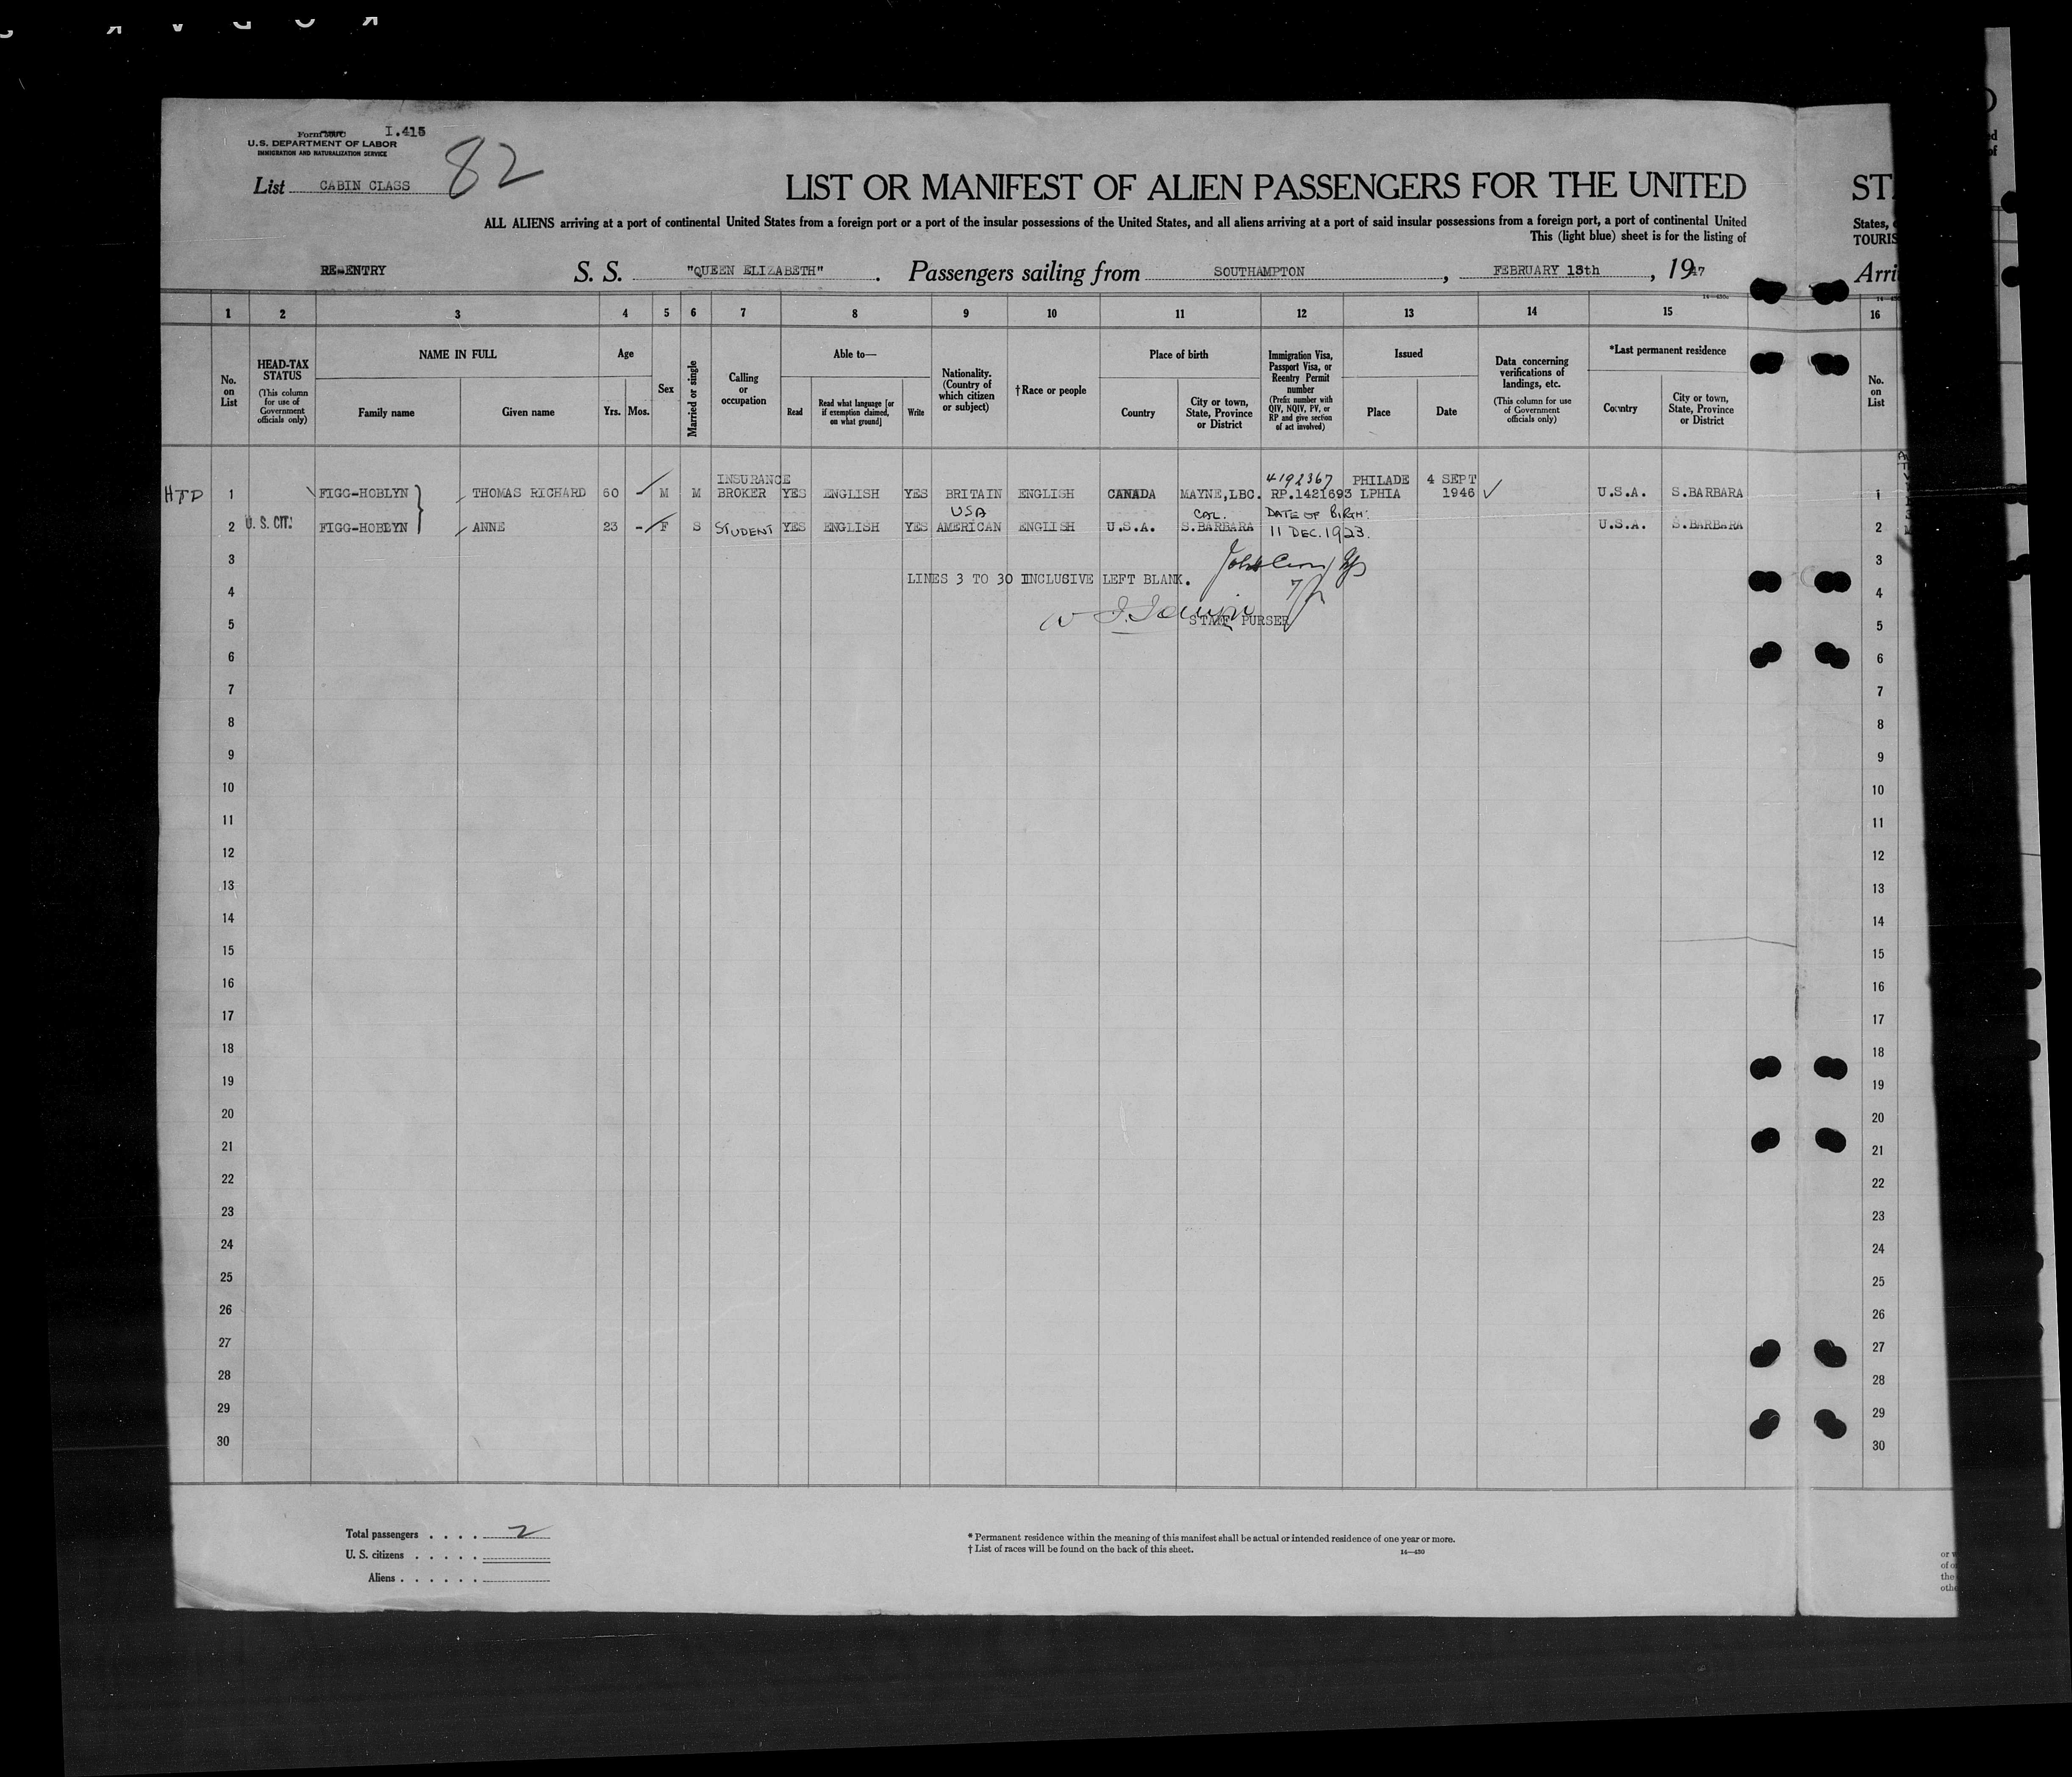 Form 500C I.415
U.S. DEPARTMENT OF LABOR
IMMIGRATION AND NATURALIZATION SERVICE
List CABIN CLASS 82
LIST OR MANIFEST OF ALIEN PASSENGERS FOR THE UNITED ST
ALL ALIENS arriving at a port of continental United States from a foreign port or a port of the insular possessions of the United States, and all aliens arriving at a port of said insular possessions from a foreign port, a port of continental United States,
This (light blue) sheet is for the listing of TOURIS
RE-ENTRY S. S. "QUEEN ELIZABETH". Passengers sailing from SOUTHAMPTON, FEBRUARY 13th, 1947 Arri
14—430
1 2 3 4 5 6 7 8 9 10 11 12 13 14 15 16
No. on List
HEAD-TAX STATUS (This column for use of Government officials only)
NAME IN FULL
Family name
Given name
Age
Yrs. Mos.
Sex
Married or single
Calling or occupation
Able to—
Read
Read what language [or if exemption claimed, on what ground]
Write
Nationality. (Country of which citizen or subject)
†Race or people
Place of birth
Country
City or town, State, Province or District
Immigration Visa, Passport Visa, or Reentry Permit number (Prefix number with QIV, NQIV, PV, or RP and give section of act involved)
Issued
Place
Date
Data concerning verifications of landings, etc. (This column for use of Government officials only)
*Last permanent residence
Country
City or town, State, Province or District
No. on List
INSURANCE 4192367 PHILADE 4 SEPT
HTD 1 FIGG-HOBLYN THOMAS RICHARD 60 - M M BROKER YES ENGLISH YES BRITAIN ENGLISH CANADA MAYNE,LBC. RP.1421693 LPHIA 1946 U.S.A. S.BARBARA 1
USA CAL. DATE OF BIRTH:
2 U. S. CIT. FIGG-HOBLYN ANNE 23 - F S STUDENT YES ENGLISH YES AMERICAN ENGLISH U.S.A. S.BARBARA 11 DEC. 1923. U.S.A. S.BARBARA 2
3 3
LINES 3 TO 30 INCLUSIVE LEFT BLANK.
4 4
5 STAFF PURSER 5
6 6
7 7
8 8
9 9
10 10
11 11
12 12
13 13
14 14
15 15
16 16
17 17
18 18
19 19
20 20
21 21
22 22
23 23
24 24
25 25
26 26
27 27
28 28
29 29
30 30
Total passengers . . . . 2
U. S. citizens . . . . .
Aliens . . . . . .
* Permanent residence within the meaning of this manifest shall be actual or intended residence of one year or more.
† List of races will be found on the back of this sheet.
14—430